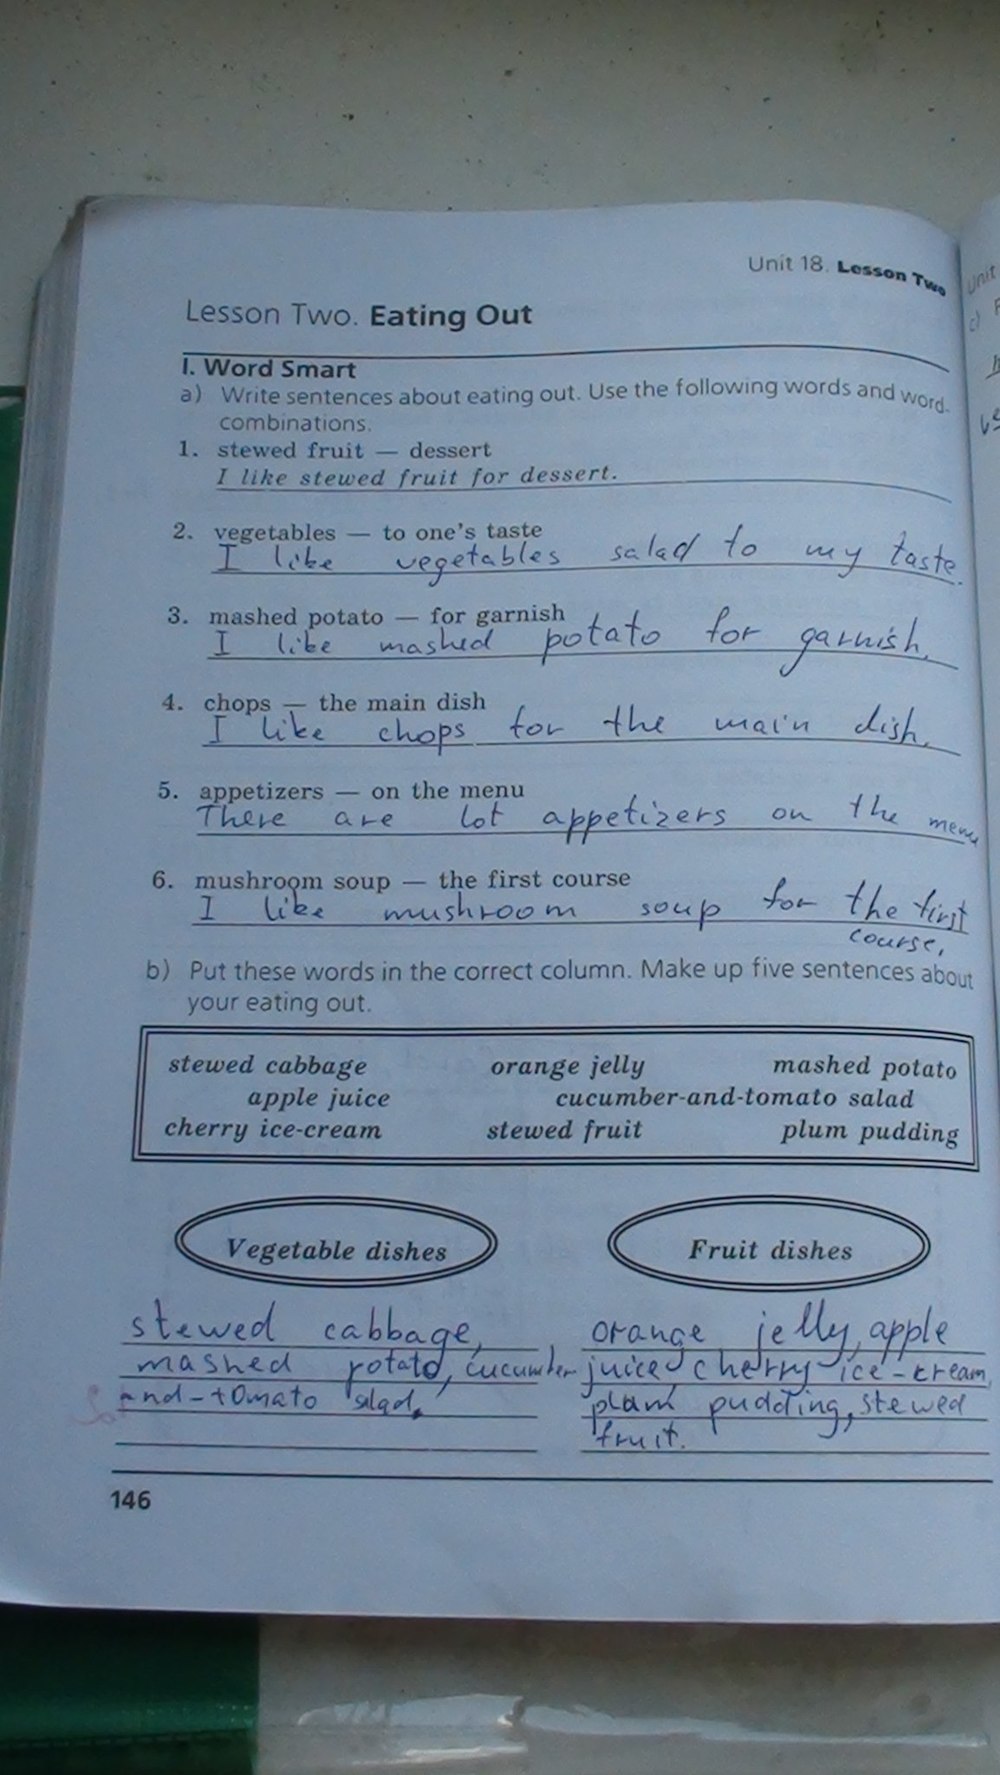 Unit 18. Lesson Two
Unit
c)
Lesson Two. Eating Out
I. Word Smart
a) Write sentences about eating out. Use the following words and word-
combinations.
1. stewed fruit — dessert
I like stewed fruit for dessert.
2. vegetables — to one's taste
I like vegetables salad to my taste.
3. mashed potato — for garnish
I like mashed potato for garnish.
4. chops — the main dish
I like chops for the main dish.
5. appetizers — on the menu
There are lot appetizers on the menu
6. mushroom soup — the first course
I like mushroom soup for the first
course.
b) Put these words in the correct column. Make up five sentences about
your eating out.
stewed cabbage orange jelly mashed potato
apple juice cucumber-and-tomato salad
cherry ice-cream stewed fruit plum pudding
Vegetable dishes Fruit dishes
stewed cabbage, orange jelly, apple
mashed potato, cucumber juice, cherry ice-cream,
and-tomato salad. plum pudding, stewed
fruit.
146